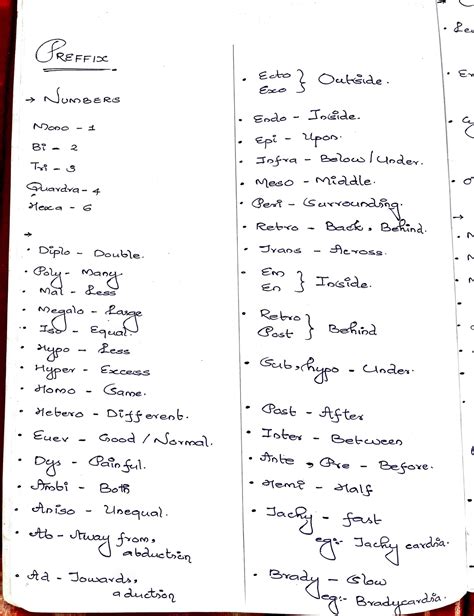 PREFFIX
→ NUMBERS
Mono - 1
Bi - 2
Tri - 3
Quardra - 4
Hexa - 6
→
• Diplo - Double.
• Poly - Many
• Mal - Less
• Megalo - Large
• Iso - Equal.
• Hypo - Less
• Hyper - Excess
• Homo - Same.
• Hetero - Different.
• Euev - Good / Normal.
• Dys - Painful.
• Ambi - Both
• Aniso - Unequal.
• Ab - Away from,
abduction
• Ad - Towards,
aduction
• Ecto
Exo } Outside.
• Endo - Inside.
• Epi - Upon.
• Infra - Below / Under.
• Meso - Middle.
• Peri - Surrounding.
• Retro - Back, Behind.
• Trans - Across.
• Em
En } Inside.
• Retro
Post } Behind
• Sub, hypo - Under.
• Post - After
• Inter - Between
• Ante, Pre - Before.
• Hemi - Half
• Tachy - fast
eg:- Tachy cardia.
• Brady - Slow
eg:- Bradycardia.